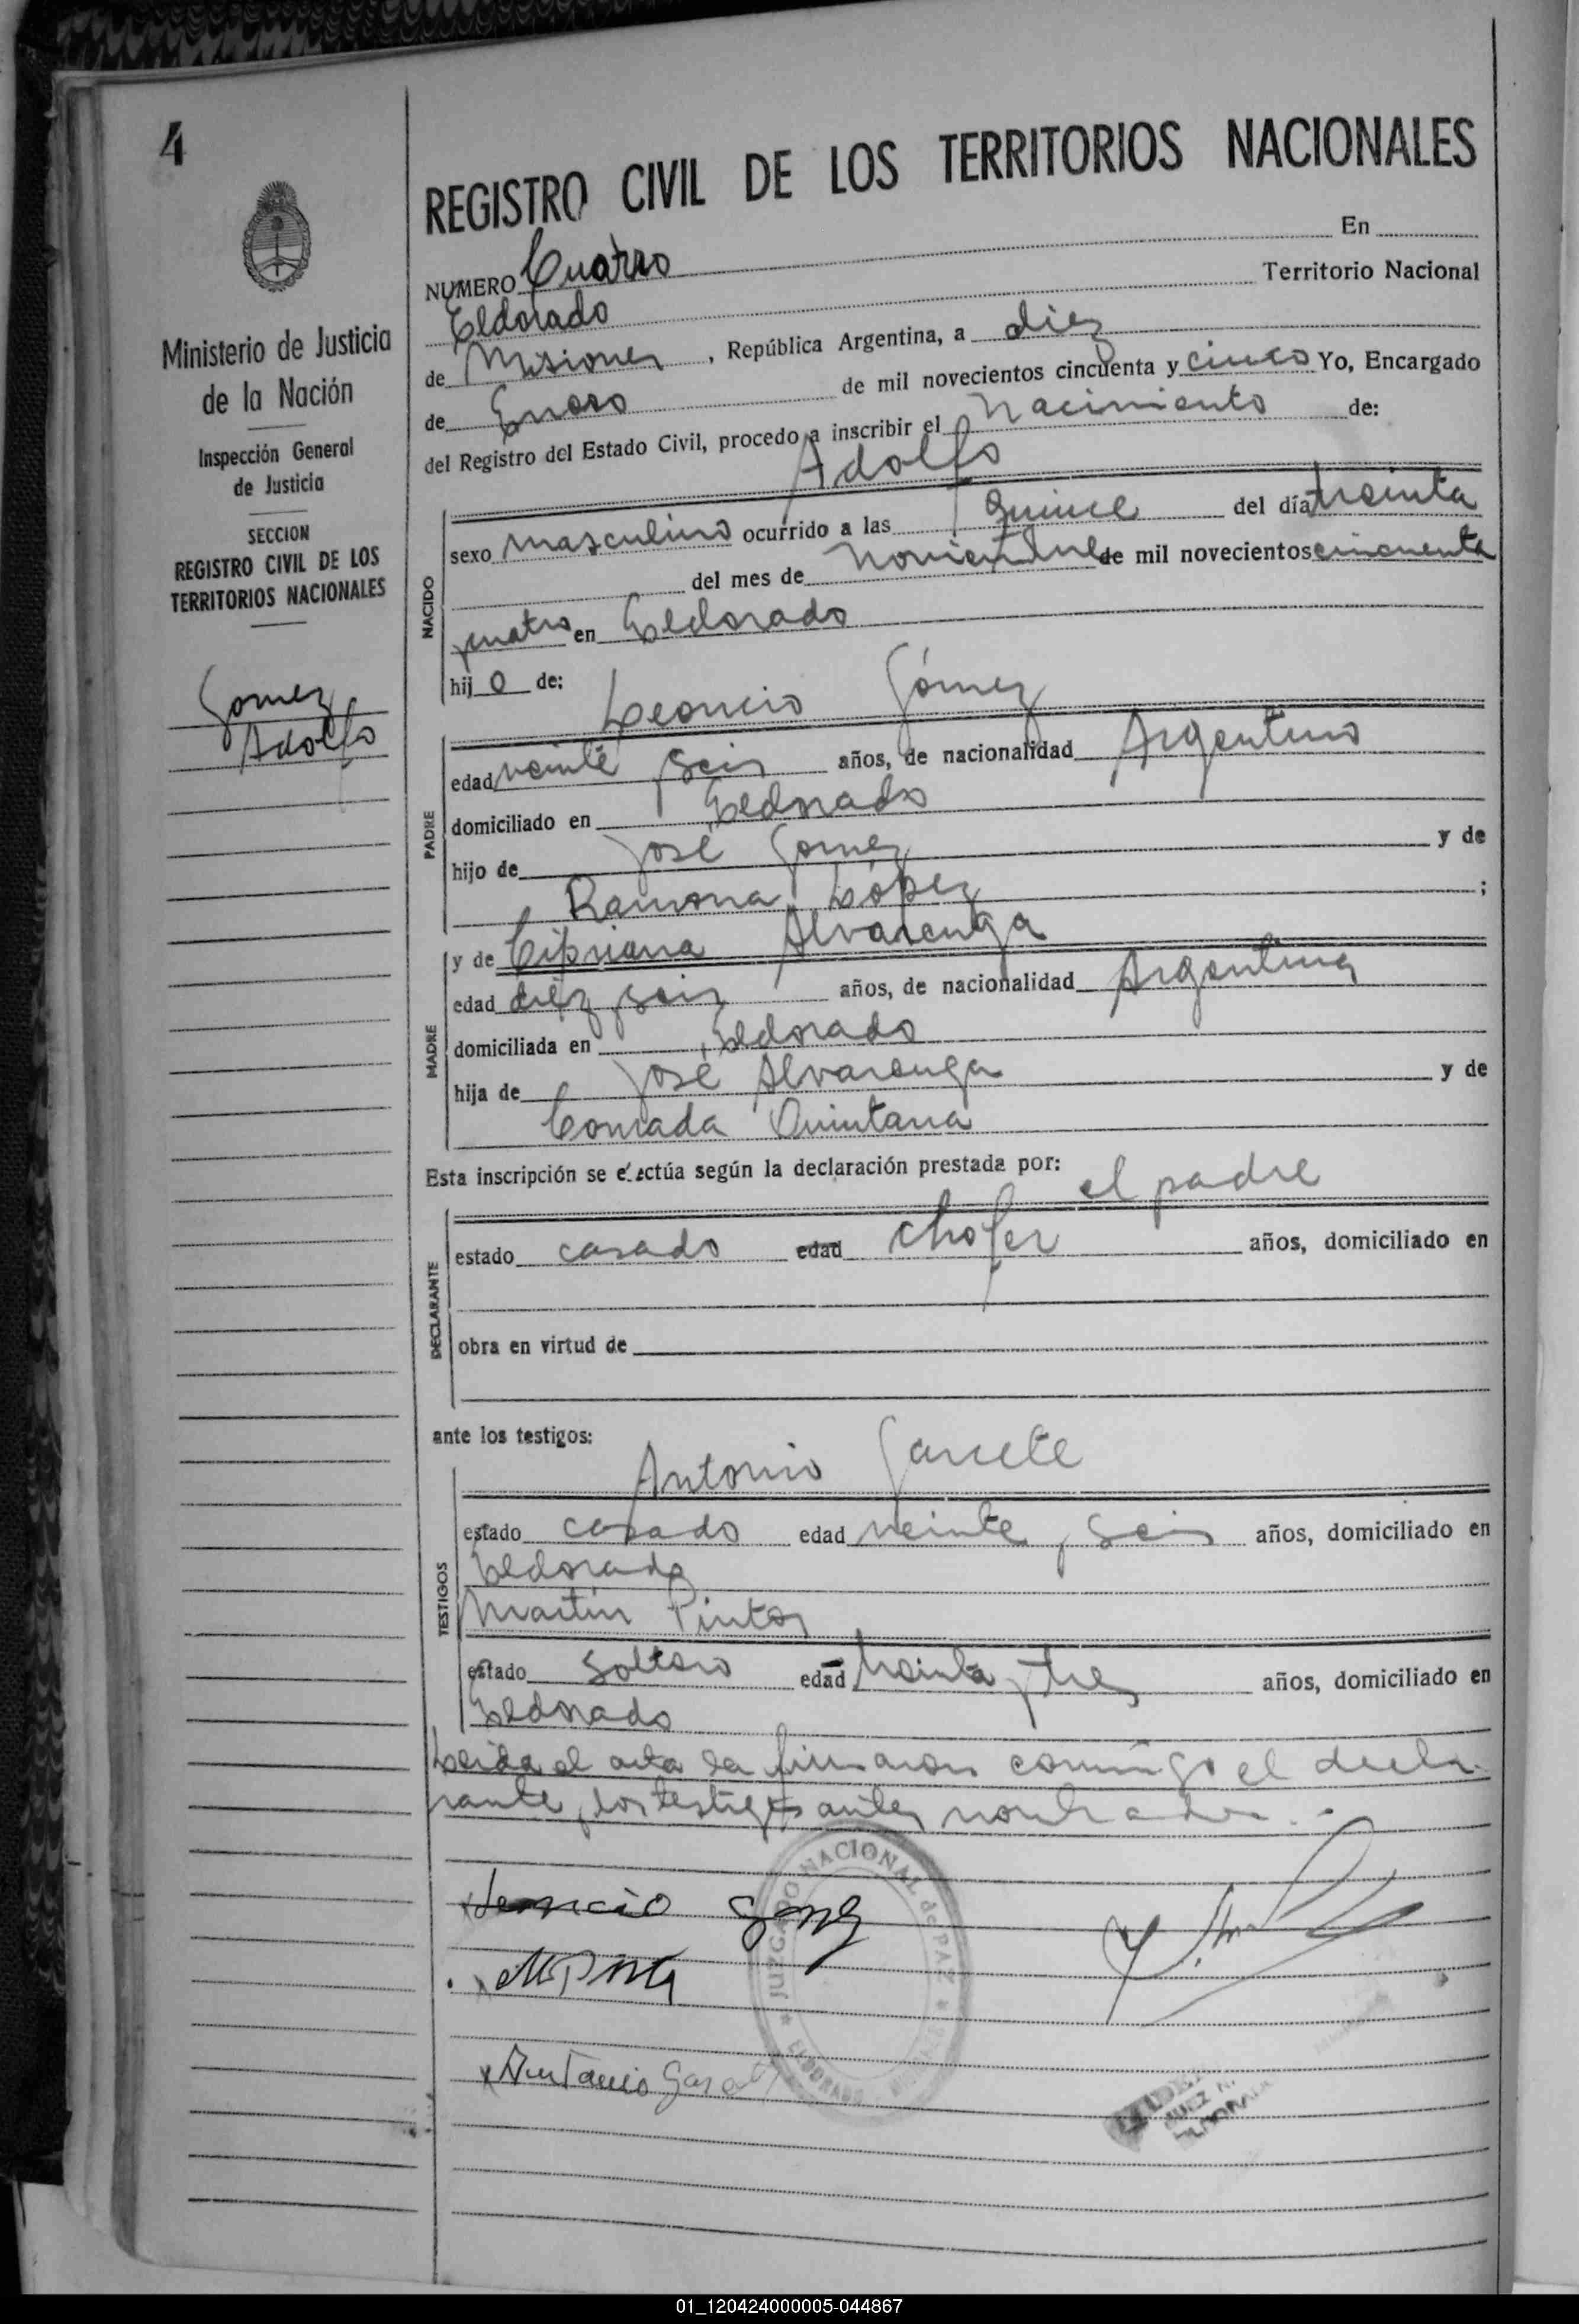 4
Ministerio de Justicia
de la Nación
Inspección General
de Justicia
SECCION
REGISTRO CIVIL DE LOS
TERRITORIOS NACIONALES
Gomez
Adolfo
REGISTRO CIVIL DE LOS TERRITORIOS NACIONALES
NUMERO Cuatro En
Eldorado Territorio Nacional
de Misiones, República Argentina, a diez
de Enero de mil novecientos cincuenta y cinco Yo, Encargado
del Registro del Estado Civil, procedo a inscribir el nacimiento de:
Adolfo
NACIDO
sexo masculino ocurrido a las quince del día treinta
del mes de Noviembre de mil novecientos cincuenta
y cuatro en Eldorado
hijo de:
Leoncio Gómez
PADRE
edad veinte y seis años, de nacionalidad Argentino
domiciliado en Eldorado
hijo de José Gomez y de
Ramona López;
MADRE
y de Cipriana Alvarenga
edad diez y seis años, de nacionalidad Argentina
domiciliada en Eldorado
hija de José Alvarenga y de
Conrada Quintana
Esta inscripción se efectúa según la declaración prestada por:
el padre
DECLARANTE
estado casado edad chofer años, domiciliado en
obra en virtud de
ante los testigos:
Antonio Garcete
TESTIGOS
estado casado edad veinte y seis años, domiciliado en
Eldorado
Martín Pinto
estado soltero edad treinta y tres años, domiciliado en
Eldorado
Leida el acta la firmaron conmigo el decla-
rante y los testigos antes nombrados.
Leoncio Gomez
JUZGADO NACIONAL de PAZ
ELDORADO
Antonio
01_120424000005-044867